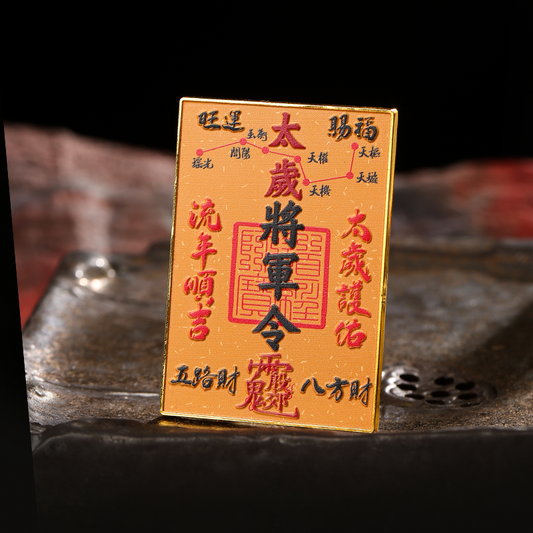 旺運
賜福
太歲將軍令
玉衡
開陽
瑤光
天權
天機
天璇
天樞
流年順吉
太歲護佑
五路財
八方財